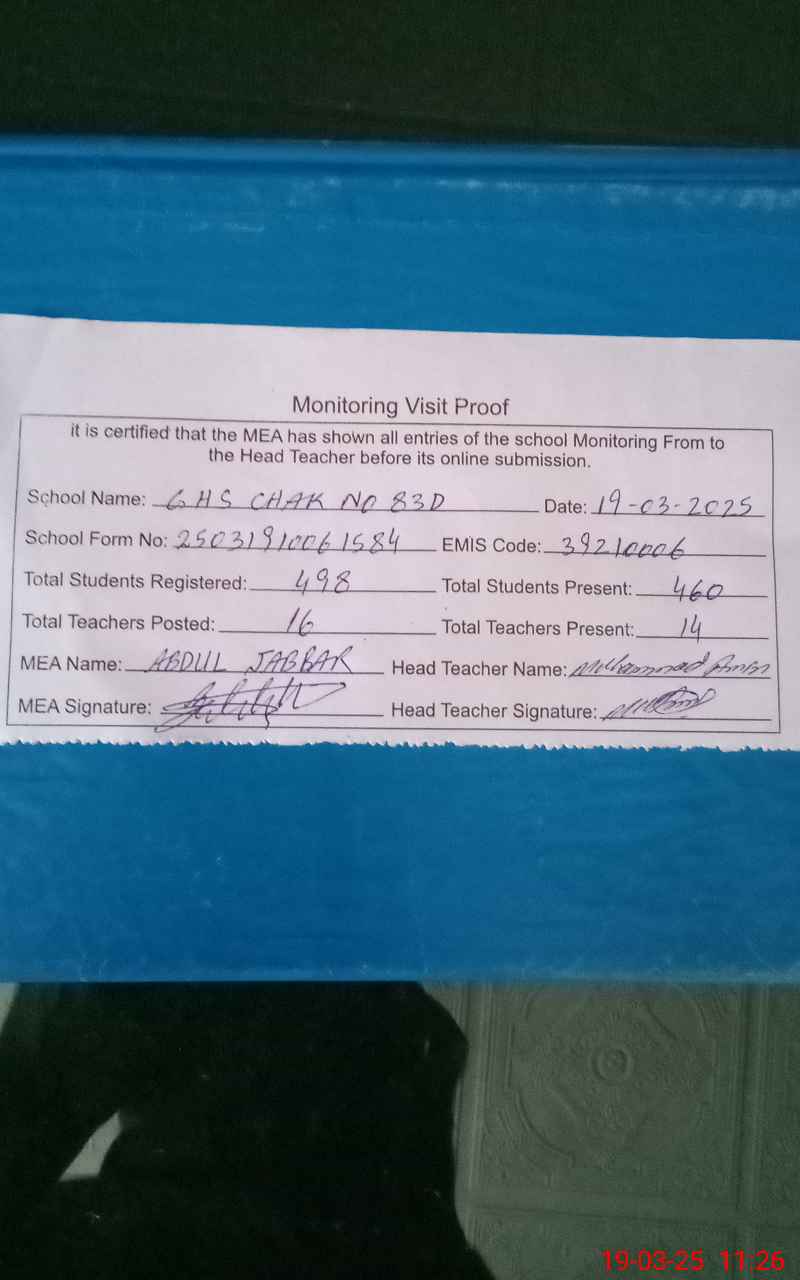 Monitoring Visit Proof
it is certified that the MEA has shown all entries of the school Monitoring From to
the Head Teacher before its online submission.
School Name: GHS CHAK NO 83D Date: 19-03-2025
School Form No: 25031910061584 EMIS Code: 39210006
Total Students Registered: 498 Total Students Present: 460
Total Teachers Posted: 16 Total Teachers Present: 14
MEA Name: ABDUL JABBAR Head Teacher Name: Muhammad
MEA Signature: Head Teacher Signature:
19-03-25 11:26